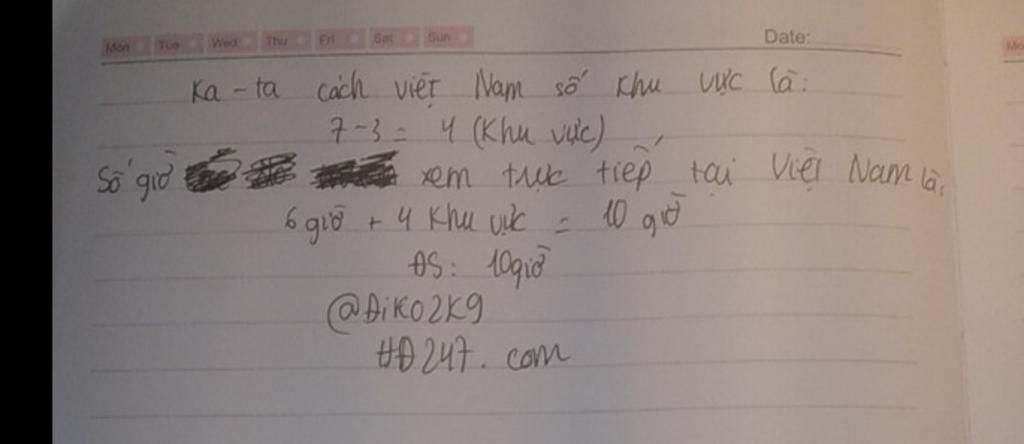 Mon Tue Wed Thu Fri Sat Sun Date:
Ka-ta cách việt Nam số khu vực là:
7-3= 4 (Khu vực)
Số giờ xem trực tiếp tại Việt Nam là:
6 giờ + 4 Khu vực = 10 giờ
ĐS: 10giờ
@ĐiKO2K9
HĐ247.com